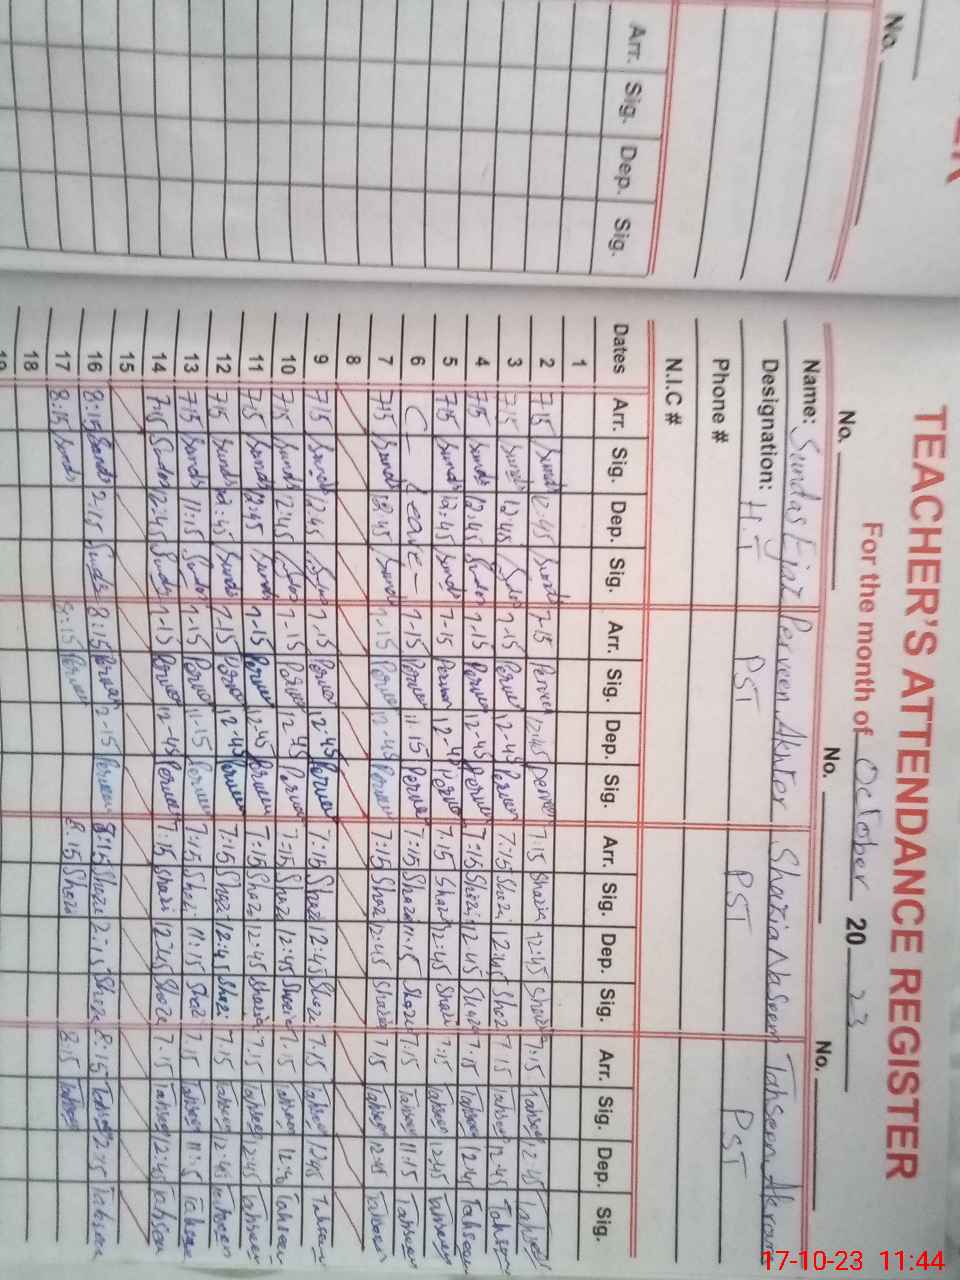 ER
No.
Arr. Sig. Dep. Sig.
TEACHER'S ATTENDANCE REGISTER
For the month of October 20 23
No. No. No.
Name: Sundas Ejaz Perveen Akhter Shazia Naseem Tahseen Akram
Designation: H.T PST PST PST
Phone #
N.I.C #
Dates Arr. Sig. Dep. Sig. Arr. Sig. Dep. Sig. Arr. Sig. Dep. Sig. Arr. Sig. Dep. Sig.
1
2 7:15 Sunds 12:45 Sunds 7-15 Perven 12:45 Perven 7:15 Shazia 12:45 Shazia 7:15 Tahseen 12:45 Tahseen
3 7:15 Sunds 12:45 7-15 Perven 12-45 Perven 7:15 Shazi 12:45 7:15 Tahseen 12:45 Tahseen
4 7:15 Sunds 12:45 7-15 Perven 12-45 Perven 7:15 Shazi 12:45 7:15 Tahseen 12:45 Tahseen
5 7:15 Sunds 12:45 Sunds 7-15 Perven 12-45 Perven 7:15 Shazi 12:45 Shazi 7:15 Tahseen 12:45 Tahseen
6 Leave 7-15 Perven 11:15 Perven 7:15 Shazi 11:15 Shazi 7:15 Tahseen 11:15 Tahseen
7 7:15 Sunds 12:45 Sunds 7-15 Perven 12-45 Perven 7:15 Shazi 12:45 Shazia 7:15 Tahseen 12:45 Tahseen
8
9 7:15 Sunds 12:45 7-15 Perven 12-45 Perven 7:15 Shazi 12:45 Shazi 7:15 Tahseen 12:45 Tahseen
10 7:15 Sunds 12:45 7-15 Perven 12-45 Perven 7:15 Shazi 12:45 7:15 Tahseen Tahseen
11 7:15 Sunds 12:45 Sunds 7-15 Perven 12-45 Perven 7:15 Shazi 12:45 Shazia 7:15 Tahseen 12:45 Tahseen
12 7:15 Sunds 12:45 Sunds 7-15 Perven 12-45 Perven 7:15 Shazi 12:45 Shazi 7:15 Tahseen 12:45 Tahseen
13 7:15 Sunds 11:15 Sunds 7-15 Perven 11-15 Perven 7:15 Shazi 11:15 Shazi 7:15 Tahseen 11:15 Tahseen
14 7:15 Sunds 12:45 Sunds 7-15 Perven 12-45 Perven 7:15 Shazi 12:45 Shazi 7:15 Tahseen 12:45 Tahseen
15
16 8:15 Sunds 2:15 Sunds 8:15 Perven 2-15 Perven 8:15 Shazi 2:15 Shazi 8:15 Tahseen 2:15 Tahseen
17 8:15 Sunds 8:15 Perven 8:15 Shazi 8:15 Tahseen
18
19
17-10-23 11:44